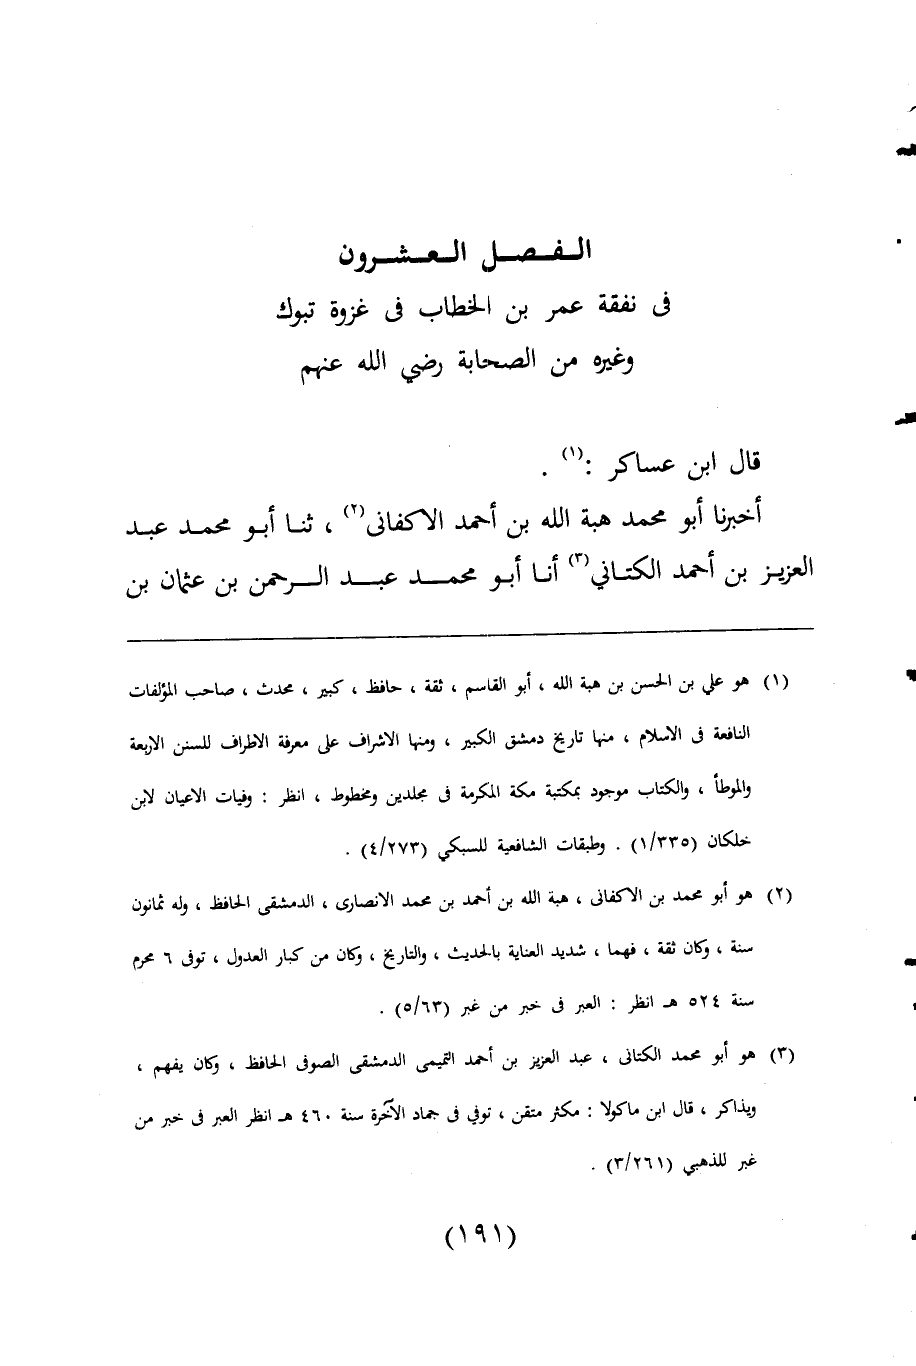 الـفـصـل الـعـشـرون
فى نفقة عمر بن الخطاب فى غزوة تبوك
وغيره من الصحابة رضي الله عنهم
قال ابن عساكر :(١) .
أخبرنا أبو محمد هبة الله بن أحمد الاكفانى(٢) ، ثنـا أبـو محمـد عبـد
العزيـز بن أحمد الكتـاني(٣) أنـا أبـو محمـــد عبـــد الـــرحمن بن عثمان بن
(١) هو علي بن الحسن بن هبة الله ، أبو القاسم ، ثقة ، حافظ ، كبير ، محدث ، صاحب المؤلفات
النافعة فى الاسلام ، منها تاريخ دمشق الكبير ، ومنها الاشراف على معرفة الاطراف للسنن الاربعة
والموطأ ، والكتاب موجود بمكتبة مكة المكرمة فى مجلدين ومخطوط ، انظر : وفيات الاعيان لابن
خلكان (١/٣٣٥) . وطبقات الشافعية للسبكي (٤/٢٧٣) .
(٢) هو أبو محمد بن الاكفانى ، هبة الله بن أحمد بن محمد الانصارى ، الدمشقى الحافظ ، وله ثمانون
سنة ، وكان ثقة ، فهما ، شديد العناية بالحديث ، والتاريخ ، وكان من كبار العدول ، توفى ٦ محرم
سنة ٥٢٤ هـ انظر : العبر فى خبر من غبر (٥/٦٣) .
(٣) هو أبو محمد الكتانى ، عبد العزيز بن أحمد التميمى الدمشقى الصوفى الحافظ ، وكان يفهم ،
ويذاكر ، قال ابن ماكولا : مكثر متقن ، توفي فى جماد الآخرة سنة ٤٦٠ هـ انظر العبر فى خبر من
غبر للذهبي (٣/٢٦١) .
(١٩١)